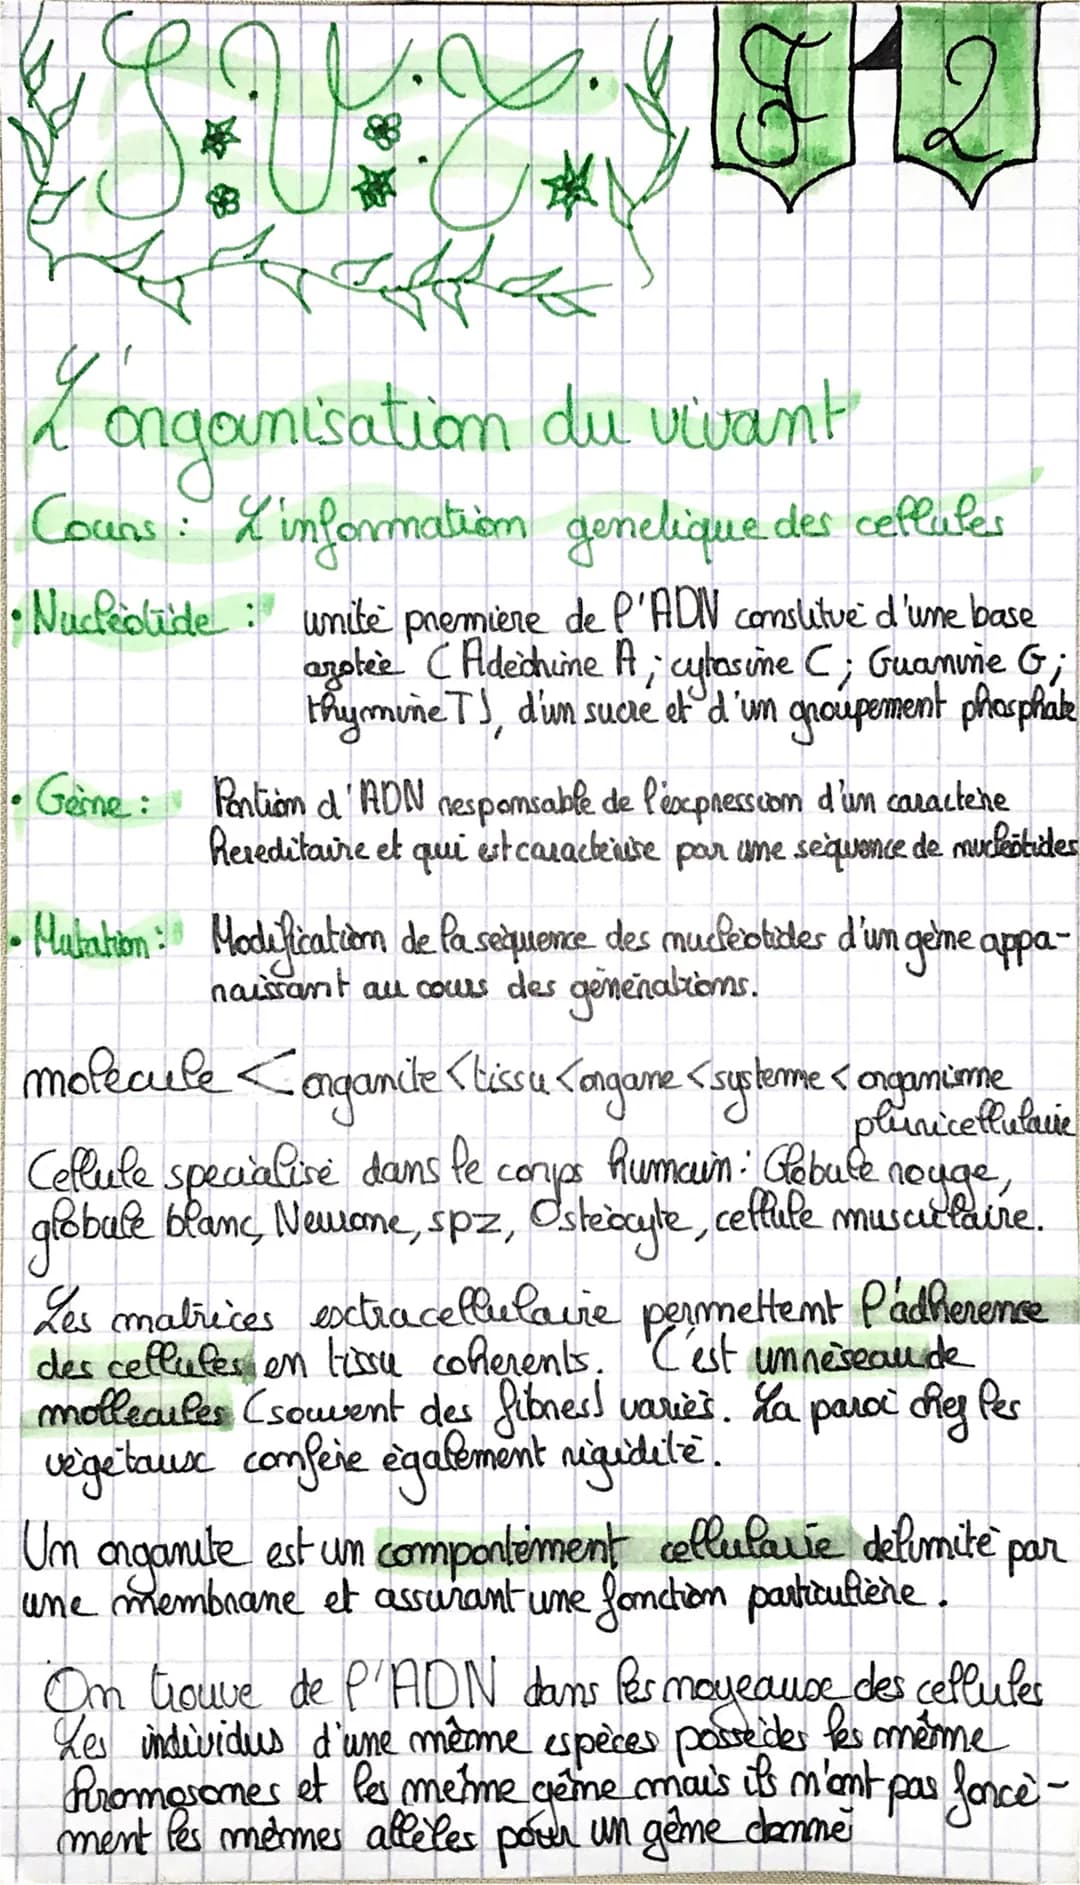 S.V.T.
F 2
L'organisation du vivant
Cours : L'information genetique des cellules
• Nucléotide : unité première de l'ADN constitué d'une base
azotée (Adéchine A ; cytosine C ; Guanine G ;
thymine T), d'un sucre et d'un groupement phosphate
• Gène : Portion d'ADN responsable de l'éxpression d'un caractere
hereditaire et qui est caractérisé par une séquence de nucléotides
• Mutation : Modification de la séquence des nucléotides d'un gène appa-
raissant au cours des générations.
molécule < organite < tissu < organe < systemme < organisme
pluricellulaire
Cellule specialisé dans le corps humain : Globule rouge,
globule blanc, Neurone, spz, Ostéocyte, cellule musculaire.
Les matrices extracellulaire permettent l'adherence
des cellules en tissu coherents. C'est un réseau de
mollecules (souvent des fibres) variés. La paroi chez les
végétaux confère également rigidité.
Un organite est un comportement cellulaire délimité par
une membrane et assurant une fonction particulière.
On trouve de l'ADN dans les noyeaux des cellules
Les individus d'une même espèces possèdes les même
chromosomes et les même gène mais ils n'ont pas forcé-
ment les mêmes allèles pour un gène donné